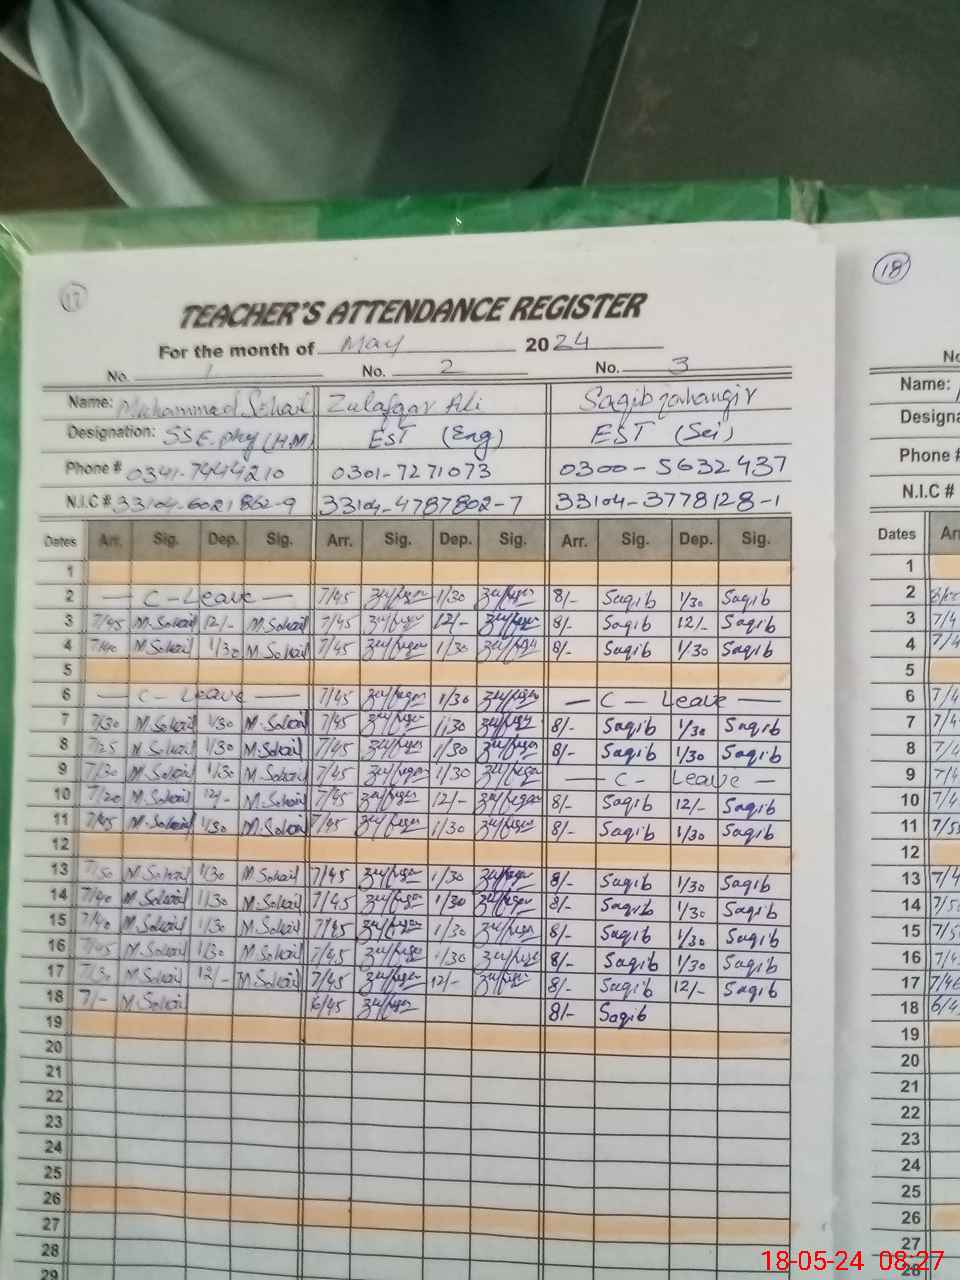 17
18
TEACHER'S ATTENDANCE REGISTER
For the month of May 2024
No. 1 No. 2 No. 3
Name: Muhammad Sohail Zulafqar Ali Saqib jahangir
Designation: SSE. phy (H.M) EST (Eng) EST (Sci)
Phone # 0341-7444210 0301-7271073 0300-5632437
N.I.C # 33104-6021862-9 33104-4787802-7 33104-3778128-1
Dates Arr. Sig. Dep. Sig. Arr. Sig. Dep. Sig. Arr. Sig. Dep. Sig.
1
2 — C-Leave — 7/45 1/30 8/- Saqib 1/30 Saqib
3 7/45 M.Sohail 12/- M.Sohail 7/45 12/- 8/- Saqib 12/- Saqib
4 7/40 M.Sohail 1/30 M.Sohail 7/45 1/30 8/- Saqib 1/30 Saqib
5
6 — C-Leave — 7/45 1/30 — C-Leave —
7 7/30 M.Sohail 1/30 M.Sohail 7/45 1/30 8/- Saqib 1/30 Saqib
8 7/25 M.Sohail 1/30 M.Sohail 7/45 1/30 8/- Saqib 1/30 Saqib
9 7/30 M.Sohail 1/30 M.Sohail 7/45 1/30 — C-Leave —
10 7/20 M.Sohail 12/- M.Sohail 7/45 12/- 8/- Saqib 12/- Saqib
11 7/45 M.Sohail 1/30 M.Sohail 7/45 1/30 8/- Saqib 1/30 Saqib
12
13 M.Sohail 1/30 M.Sohail 7/45 1/30 8/- Saqib 1/30 Saqib
14 7/40 M.Sohail 1/30 M.Sohail 7/45 1/30 8/- Saqib 1/30 Saqib
15 7/40 M.Sohail 1/30 M.Sohail 7/45 1/30 8/- Saqib 1/30 Saqib
16 7/45 M.Sohail 1/30 M.Sohail 7/45 1/30 8/- Saqib 1/30 Saqib
17 7/30 M.Sohail 12/- M.Sohail 7/45 12/- 8/- Saqib 12/- Saqib
18 7/- M.Sohail 6/45 8/- Saqib
19
20
21
22
23
24
25
26
27
28
29
Name:
Phone #
N.I.C #
Dates
1
2
3
4
5
6
7
8
9
10
11
12
13
14
15
16
17
18
19
20
21
22
23
24
25
26
27
28
18-05-24 08:27